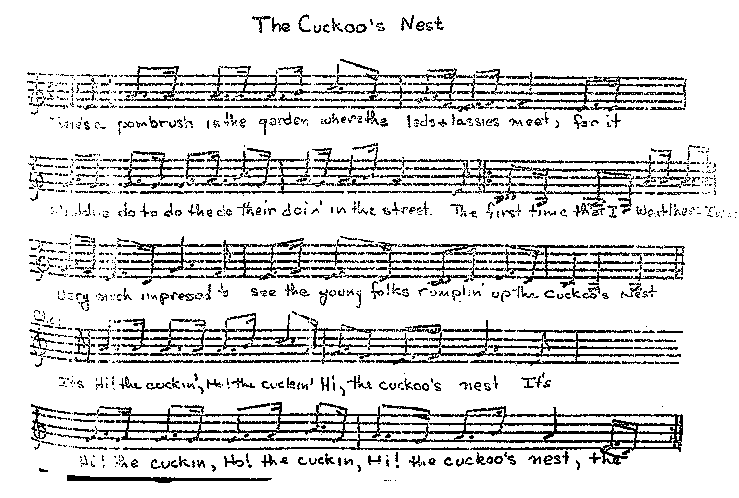 The Cuckoo's Nest
There's a pornbrush in the garden where the lads + lassies meet, for it
wouldna do to do the do their doin' in the street. The first time that I went there I was
Very much impressed to see the young folks rumplin' up the cuckoo's nest
It's Hi! the cuckin', Ho! the cuckin' Hi, the cuckoo's nest It's
Hi! the cuckin, Ho! the cuckin, Hi! the cuckoo's nest, the